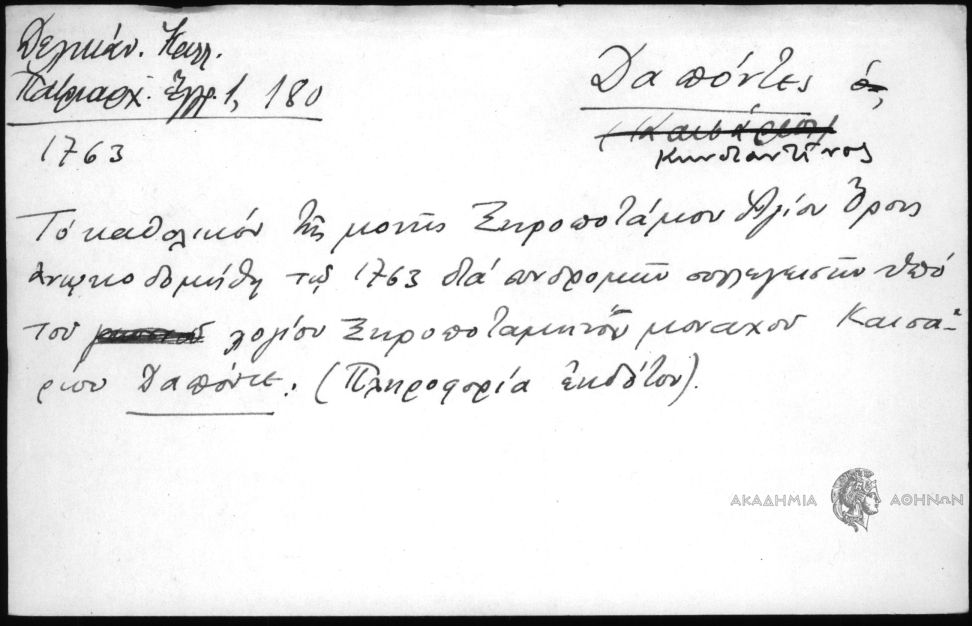 Δελικάν. Καλλ.
Πατριαρχ. Ἔγγρ. 1, 180
1763
Δαπόντες ὁ,
(Καισάριος)
Κωνσταντῖνος
Τό καθολικόν τῆς μονῆς Ξηροποτάμου Ἁγίου Ὄρους
ἀνῳκοδομήθη τῷ 1763 διά συνδρομῶν συλλεγεισῶν ὑπό
τοῦ λογίου Ξηροποταμηνοῦ μοναχοῦ Καισα-
ρίου Δαπόντε. (Πληροφορία ἐκδότου).
ΑΚΑΔΗΜΙΑ ΑΘΗΝΩΝ